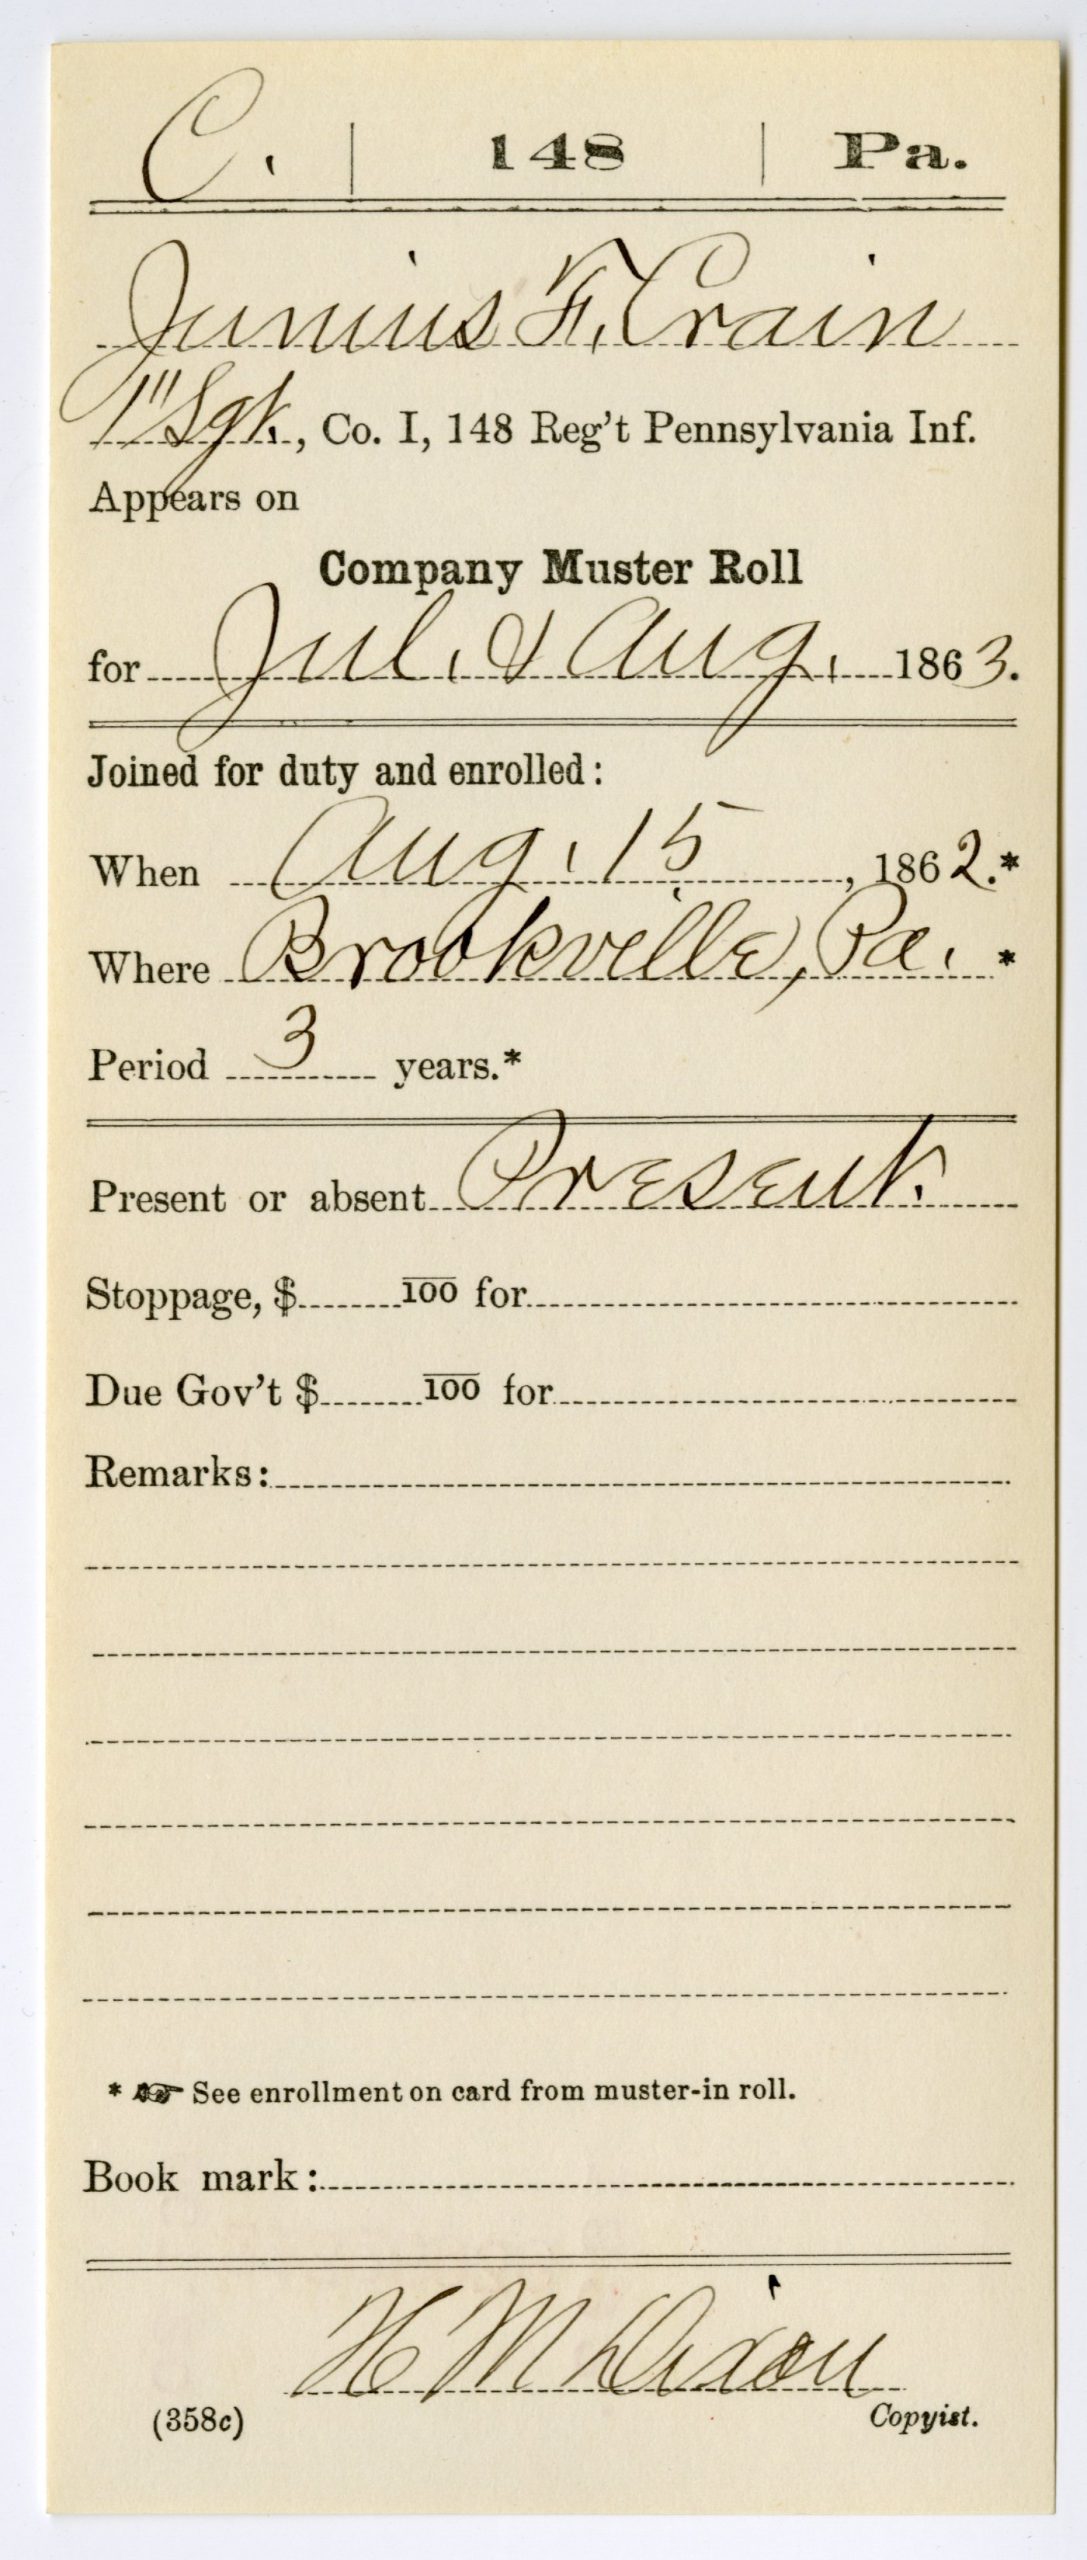 C. | 148 | Pa.
Junius F. Crain
1" Sgt., Co. I, 148 Reg't Pennsylvania Inf.
Appears on
Company Muster Roll
for Jul. & Aug. 1863.
Joined for duty and enrolled:
When Aug. 15, 1862.*
Where Brookville, Pa. *
Period 3 years.*
Present or absent Present.
Stoppage, $ 100 for
Due Gov't $ 100 for
Remarks:
* ☞ See enrollment on card from muster-in roll.
Book mark:
H M Dixon
(358c) Copyist.